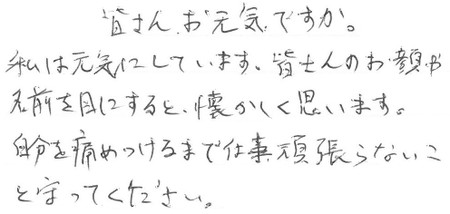 皆さん、お元気ですか。
私は元気にしています、皆さんのお顔や
名前を目にすると、懐かしく思います。
自分を痛めつけるまで仕事頑張らないこ
と守ってください。